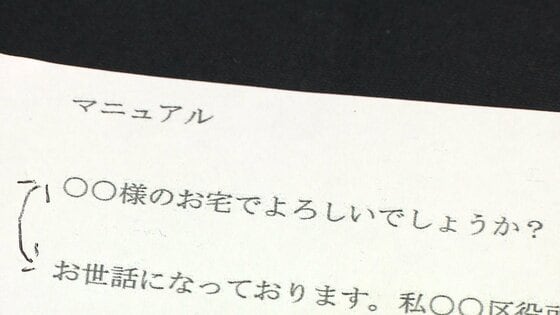 マニュアル
〇〇様のお宅でよろしいでしょうか？
お世話になっております。私〇〇区役